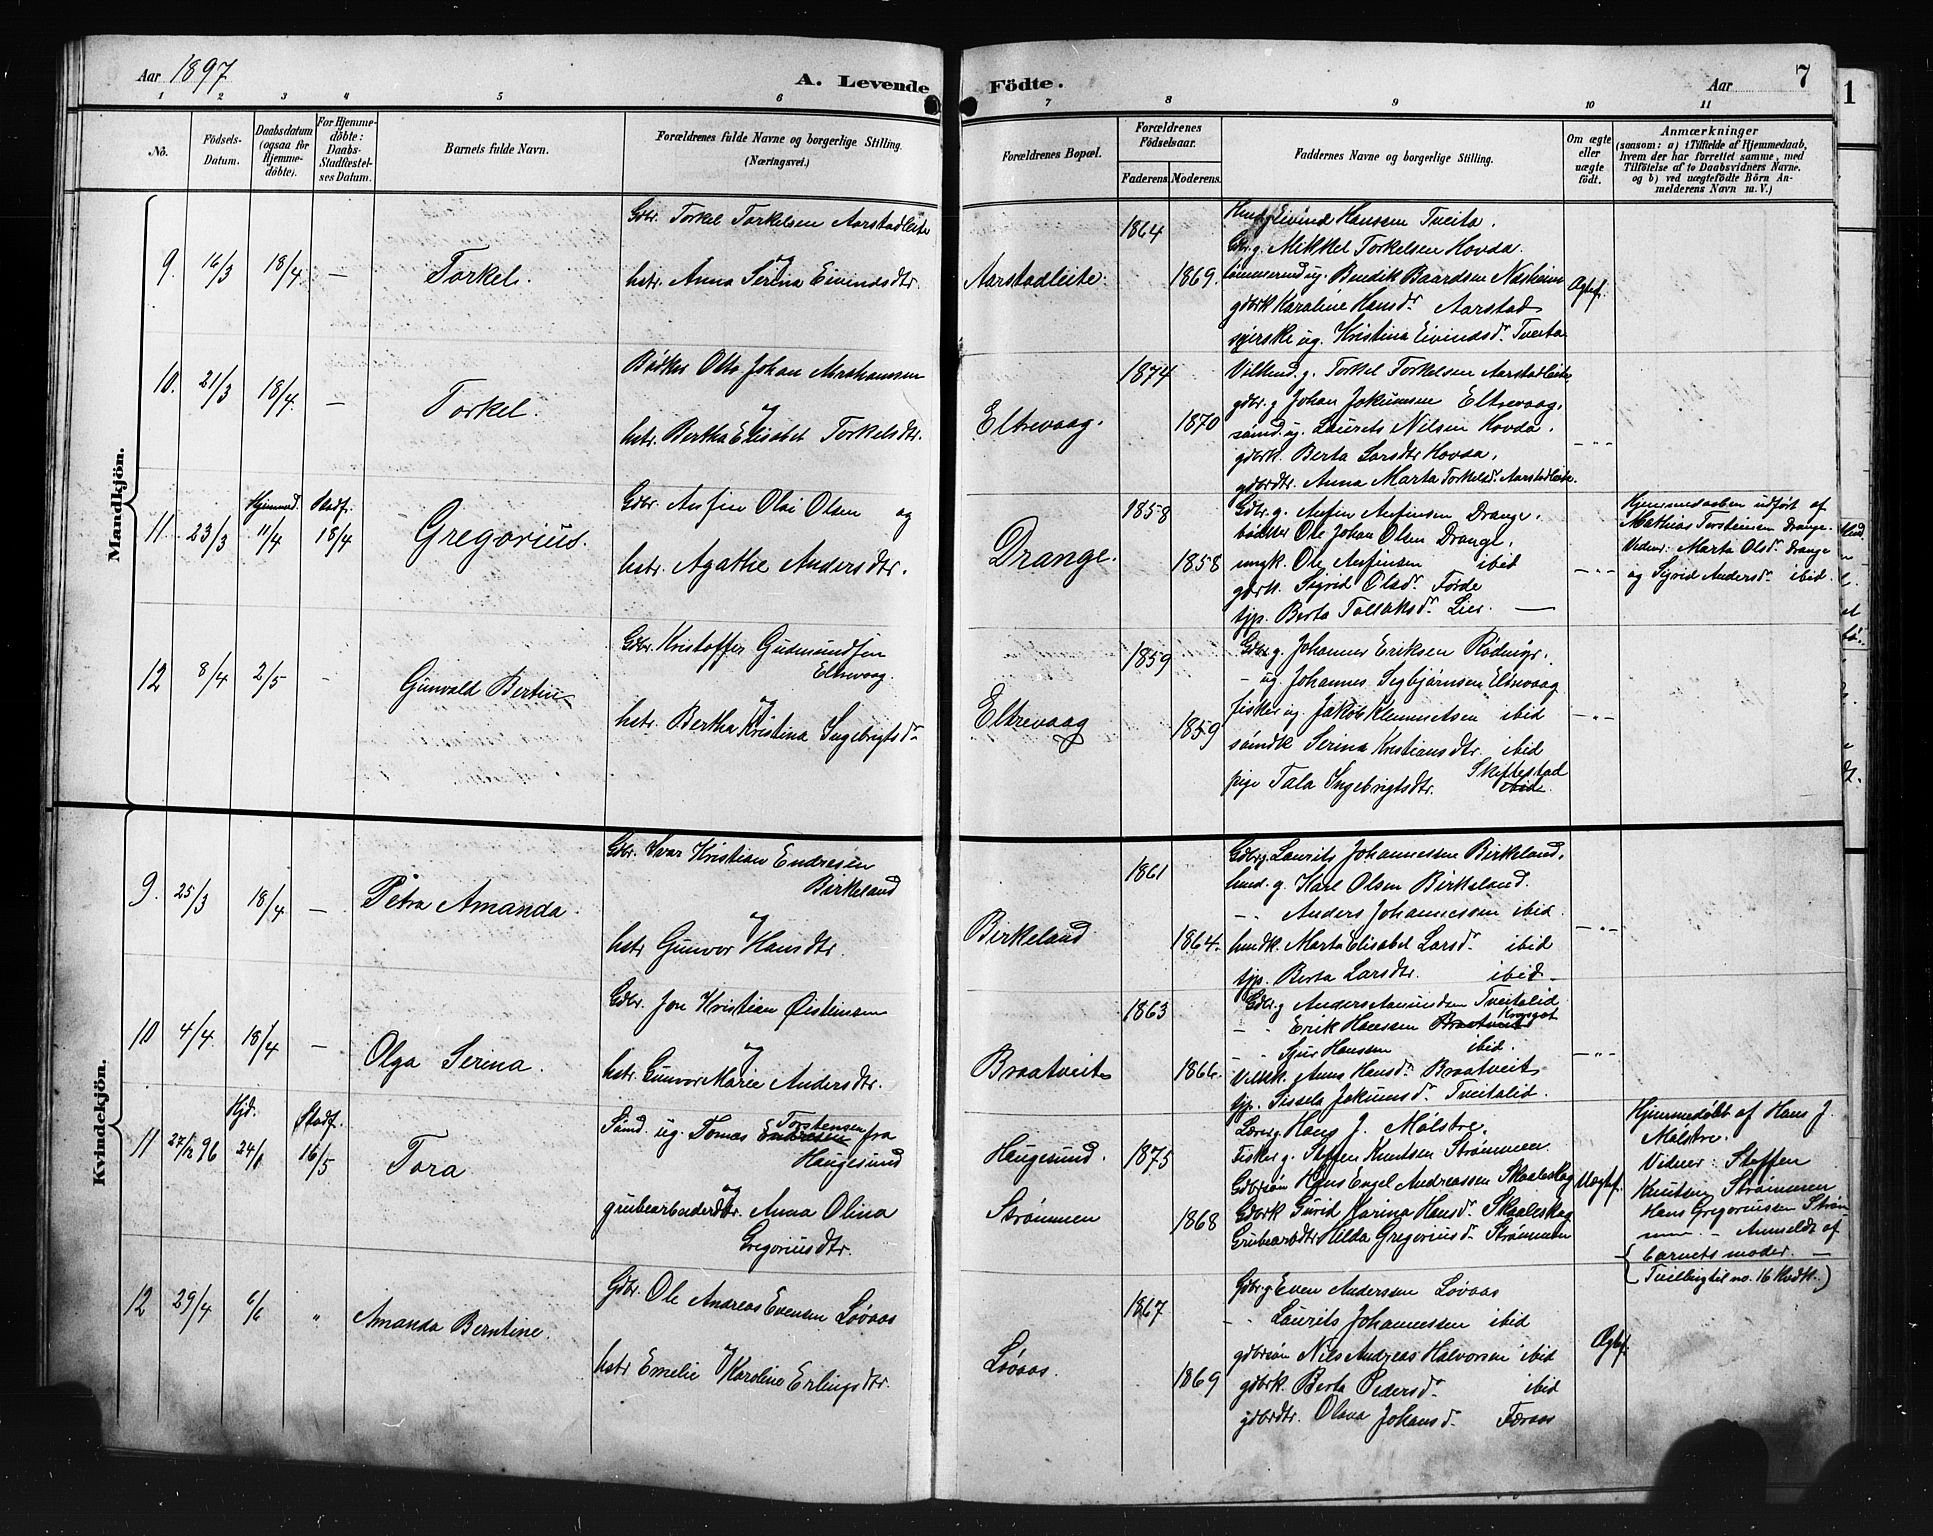 Aar 1897
A. Levende Födte.
Aar 7
1 2 3 4 5 6 7 8 9 10 11
No.
Födsels-Datum.
Daabsdatum (ogsaa for Hjemmedöbte).
For Hjemmedöbte: Daabs-Stadfæstelses Datum.
Barnets fulde Navn.
Forældrenes fulde Navne og borgerlige Stilling. (Næringsvei.)
Forældrenes Bopæl.
Forældrenes Födselsaar.
Faderens. Moderens.
Faddernes Navne og borgerlige Stilling.
Om ægte eller uægte födt.
Anmærkninger
(saasom: a) i Tilfælde af Hjemmedaab, hvem der har forrettet samme, med Tilföielse af to Daabsvidners Navne, og b) ved uægtefödte Börn Anmelderens Navn m. V.)
Mandkjön.
9. 16/3 18/4 — Torkel.
Gdbr. Torkel Torkelsen Aarstadleite
og
hstr. Anna Serina Eivindsdtr.
Aarstadleite.
1864
1869.
Eivind Hanssen Tveita.
Gdbr. g. Mikkel Torkelsen Hovda.
tømmermd ug. Bendik Baardsen Næsheim
gdbrk Karaline Hansdr. Aarstad
ug. Kristina Eivindsdr. Tveita
Ægtef.
10. 21/3 18/4. — Torkel.
Bødker Otto Johan Abrahamsen
og
hstr. Bertha Elisabet Torkelsdtr.
Eltrevaag.
1874
1870
g. Torkel Torkelsen Aarstadleite
gdbr. g Johan Jokumsen Eltrevaag.
sømd. ug. Laurits Nilsen Hovda.
gdbrk. Berta Larsdtr Hovda.
gdbrdtr. Anna Marta Torkelsdr. Aarstadleite.
— " —
11. 23/3 Hjemmed. 11/4 Stadf. 18/4 Gregorius.
Gdbr. Anfin Olai Olsen og
hstr. Agathe Andersdtr.
Drange.
1858
1858
Gdbr. g. Anfin Anfinsen Drange.
bødker Ole Johan Olsen Drange.
ungk. Ole Anfinsen ibid
gdbrk. Sigrid Olsdr. Førde
tjp. Berta Tollaksdr. Lier. —
— " —
Hjemmedaaben udført af
Mathias Torsteinsen Drange.
Vidner: Marta Olsdr. Drange
og Sigrid Andersdr. ibid.
12 8/4 2/5 - Gunvald Bertin
Gdbr. Kristoffer Gudmundsen
Eltrevaag.
og
hstr. Bertha Kristina Ingebrigtsdr.
Eltrevaag
1859
1859
Gdbr g. Johannes Eriksen Rødninger.
— ug. Johannes Segbjørnsen Eltrevaag
fisker ug. Jakob Klemmetsen ibid
sømdk Serina Kristiansdtr. ibid
pige Tala Ingebrigtsdtr. Skiftestad
ibid
— " —
Kvindekjön.
9. 25/3 18/4 — Petra Amanda.
Gdbr. Ivar Kristian Endresen
Birkeland
og
hstr Gunvor Hansdtr.
Birkeland
1861
1864.
Gdbr g. Laurits Johannessen Birkeland.
hmd. g. Karl Olsen Birkeland.
— " — Anders Johannessen ibid.
hmdk. Marta Elisabet Larsdr. ibid
tjp. Berta Larsdtr. ibid —
— " —
10 4/4. 18/4 — Olga Serina.
Gdbr. Jon Kristian Øistensen
og
hstr. Gunvor Marie Andersdtr.
Braatveit
1863
1866.
Gdbr. g Anders Aamundsen Tveitalid.
— " Erik Hanssen Braatveit
— " Sjur Hanssen ibid.
Anna Hansdr. Braatveit
tjp. Sissela Jokumsdr. Tveitalid.
— " —
11 27/12 96 Hjd. 24/1 Stadf. 16/5 Tora
Sømd. ug. Tomas Endresen Torstensen fra
Haugesund
og
grubearbeiderdtr. Anna Olina
Gregoriusdtr.
Haugesund.
Strømmen
1875
1868
Lærer g. Hans J. Mølstre.
Fisker g. Steffen Knutsen Strømmen.
Gdbrsøn Hans Engel Andreassen Skaaleskog
Gdbrk Gurid Karina Hansdr. Skaaleskog
Grubearbdtr Hilda Gregoriusdr. Strømmen
Uægtef.
Hjemmedøbt af Hans J.
Mølstre.
Vidner: Steffen
Knutsen Strømmen
Hans Gregoriussen Strøm-
men. — Anmeldt af
barnets moder. —
(Tvilling til no. 16 Kvdk.)
12 29/4 6/6 " Amanda Berntine.
Gdbr. Ole Andreas Evensen Løvaas
og
hstr Emelie Karoline Erlingsdtr.
Løvaas.
1867
1869
Gdbr g Even Anderssen Løvaas
— " — Laurits Johannessen ibid
gdbrsøn Nils Andreas Halvorsen ibid
gdbrk. Berta Pedersdr. ibid
gdbrdtr. Olava Johansdr. Færaas
Ægtef.